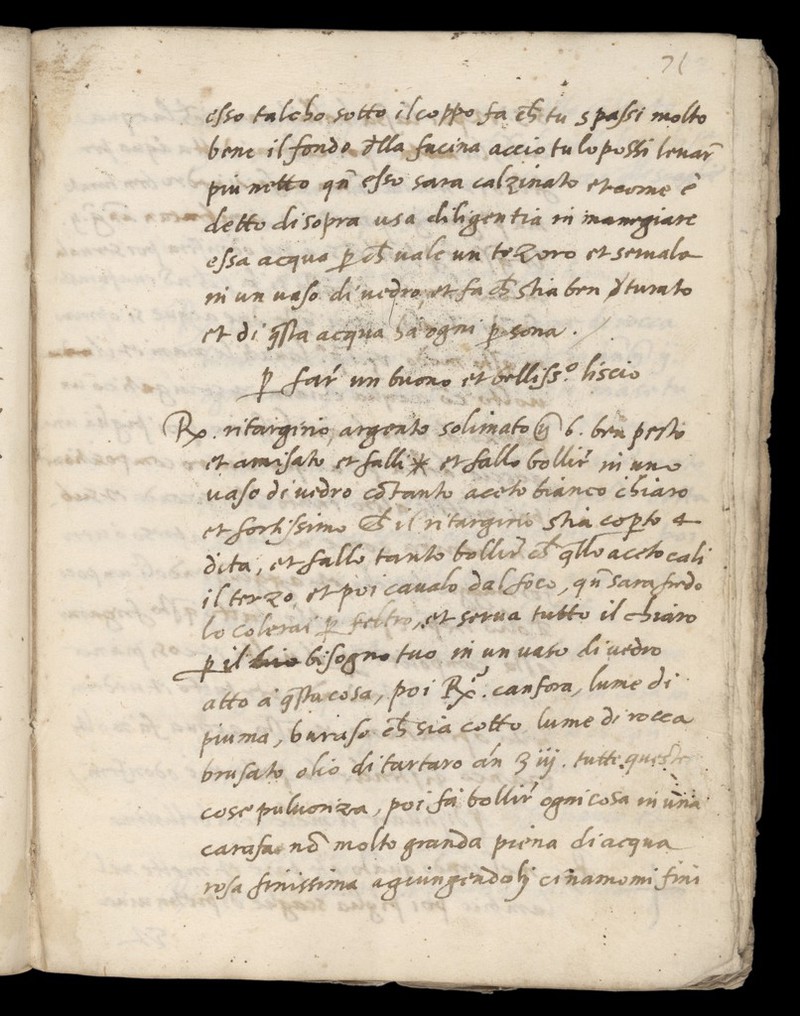 71
esso talcho sotto il coppo fa ch̃ tu spassi molto
bene il fondo d̃lla fucina accio tu lo possi levar̃
piu netto qñ esso sara calzinato et come ẽ
detto di sopra usa diligentia in manegiare
essa acqua p̱ ch̃ vale un tezoro et servala
in un vaso di vedro et fa ch̃ stia ben oturato
et di q̃sta acqua hà ogni p̱sona.
p̱ far̃ un buono et belliss.º liscio
Rx. ritargirio, argento solimato 6. ben pesto
et amisato et falli * et fallo bollir̃ in uno
vaso di vedro cõ tanto aceto bianco chiaro
et fortissimo ch̃ il ritargirio stia cop̱to 4
dita, et fallo tanto bollir̃ ch̃ q̃llo aceto cali
il terzo, et poi cavalo dal foco, qñ sara fredo
lo colerai p̱ feltro, et serva tutto il chiaro
p̱ il bisogno tuo in un vaso di vedro
atto à q̃sta cosa, poi Rx. canfora, lume di
piuma, buraso ch̃ sia cotto lume di rocca
brusato olio di tartaro añ ʒ iij. tutte queste
cose pulveriza, poi fà bollir̃ ogni cosa in una
carafa nõ molto granda piena di acqua
rosa finissima agiungendoli cinamomi fini